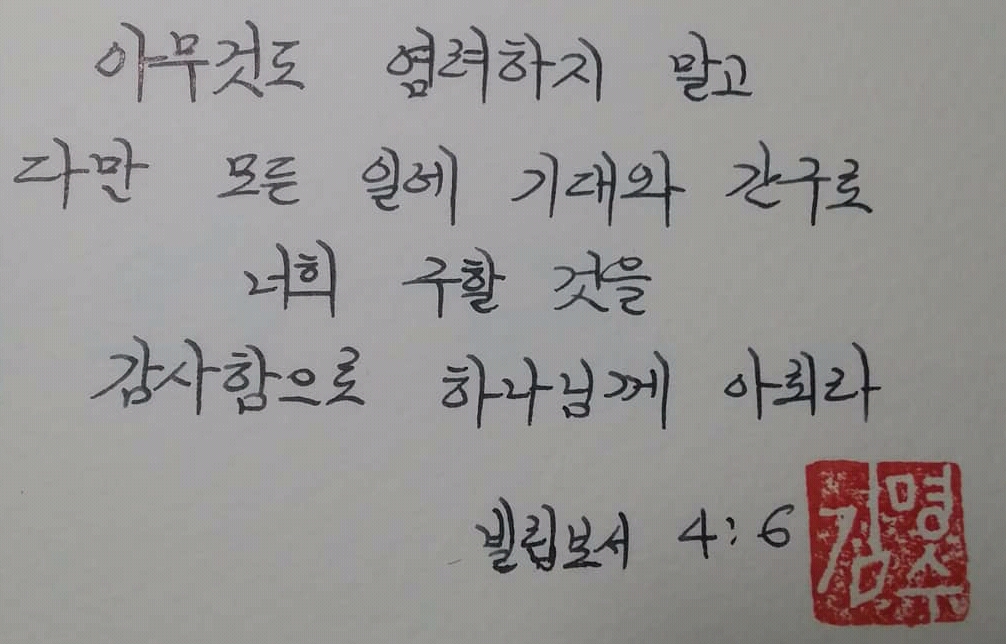 아무것도 염려하지 말고
다만 모든 일에 기대와 간구로
너희 구할 것을
감사함으로 하나님께 아뢰라
빌립보서 4:6
김명수